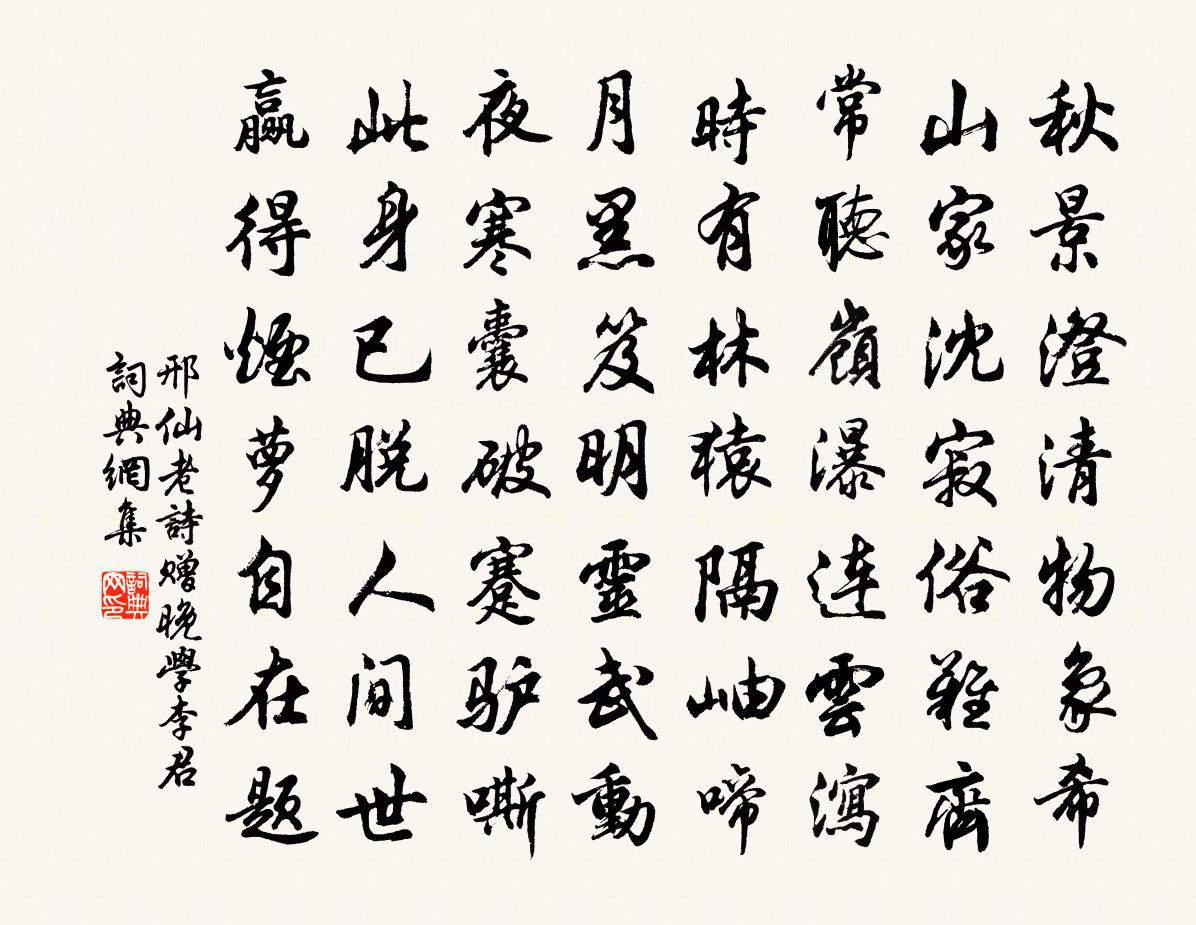 秋景澄清物象希
山家沈寂俗難齊
常聽嶺瀑連雲瀉
時有林猿隔岫啼
月黑笈明靈武動
夜寒囊破蹇驴嘶
此身已脱人间世
贏得煙萝自在题
邢仙老詩赠晚學李君
詞典網集
詞典网印